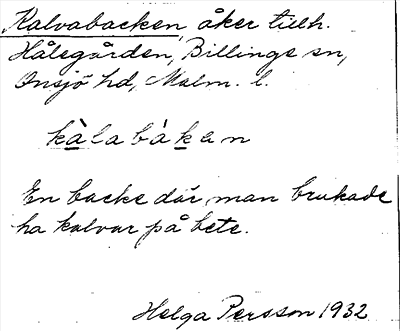 Kalvabacken åker tillh.
Hålegården, Billinge sn,
Onsjö hd, Malm. l.
kàlabàkɐn
En backe där man brukade
ha kalvar på bete.
Helga Persson 1932